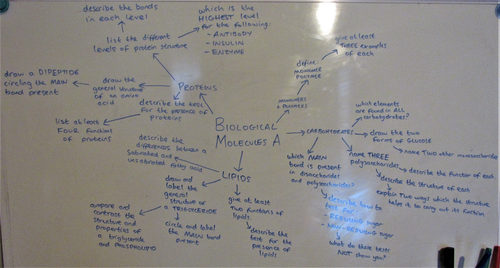 describe the bonds
in each level
which is the
HIGHEST level
for the following:
- ANTIBODY
- INSULIN
- ENZYME
list the different
levels of protein structure
draw a DIPEPTIDE
circling the MAIN
bond present
draw the
general structure
of an amino
acid
PROTEINS
describe the test
for the presence of
proteins
list at least
FOUR functions of
proteins
BIOLOGICAL
MOLECULES A
MONOMERS + POLYMERS
define
MONOMER
POLYMER
give at least
THREE examples
of each
CARBOHYDRATES
which elements
are found in ALL
carbohydrates?
draw the two
forms of GLUCOSE
name Two other monosaccharides
name THREE
polysaccharides
describe the function of each
describe the structure of each
explain Two ways which the structure
helps it to carry out its function
which MAIN
bond is present
in disaccharides
and polysaccharides?
describe how to
test for
- REDUCING sugar
- NON-REDUCING sugar
what do these tests
NOT show you?
LIPIDS
describe the
difference between a
saturated and
unsaturated fatty acid
draw and
label the
general
structure of
a TRIGLYCERIDE
circle and label
the MAIN bond
present
compare and
contrast the
structure and
properties of
a triglyceride
and PHOSPHOLIPID
give at least
two functions of
lipids
describe the
test for the
presence of
lipids